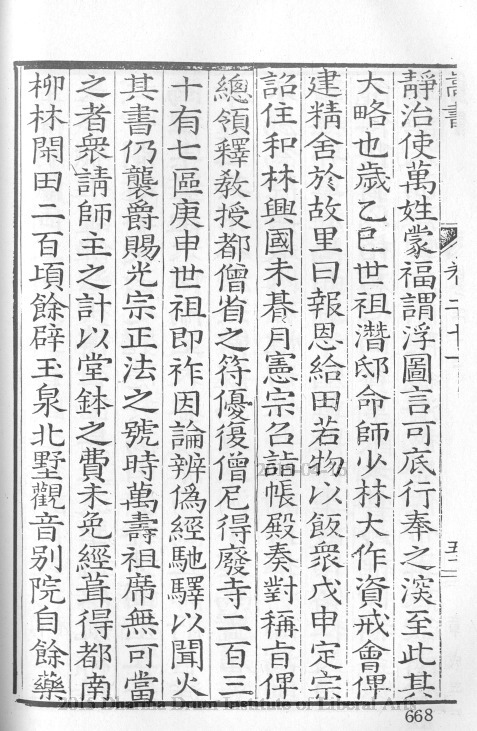 靜治使萬姓蒙福謂浮圖言可底行奉之淡至此其
大略也歲乙巳世祖潛邸命師少林大作資戒會俾
建精舍於故里曰報恩給田若物以飯衆戊申定宗
詔住和林興國未朞月憲宗召詣帳殿奏對稱旨俾
總領釋敎授都僧省之符優復僧尼得廢寺二百三
十有七區庚申世祖即祚因論辨偽經馳驛以聞火
其書仍襲爵賜光宗正法之號時萬壽祖席無可當
之者衆請師主之計以堂鉢之費未免經葺得都南
柳林閑田二百頃餘辟玉泉北墅觀音別院自餘藥
2013 Dharma Drum Institute of Liberal Arts
668